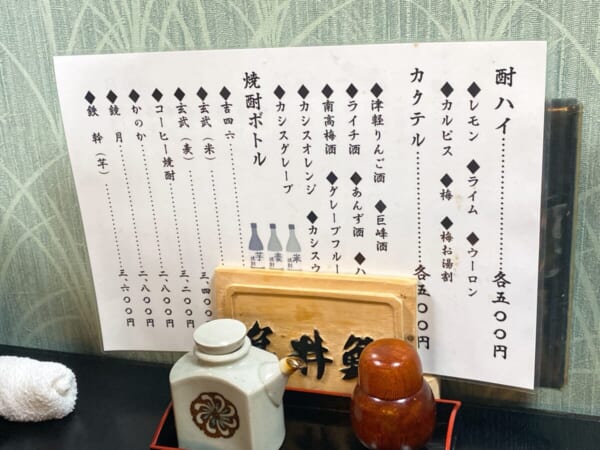 酎ハイ……各五〇〇円
◆レモン ◆ライム ◆ウーロン
◆カルピス ◆梅 ◆梅お湯割
カクテル……各五〇〇円
◆津軽りんご酒 ◆巨峰酒
◆ライチ酒 ◆あんず酒
◆南高梅酒 ◆グレープフルー
◆カシスオレンジ ◆カシスウ
◆カシスグレープ
焼酎ボトル
◆吉四六
◆玄武（米）……三、四〇
◆玄武（麦）……三、二〇〇円
◆コーヒー焼酎……二、八〇〇円
◆かのか……二、八〇〇円
◆鏡月……二、八〇〇円
◆鉄幹（芋）……三、六〇〇円
芋 麦 米
焼酎 焼酎 焼酎